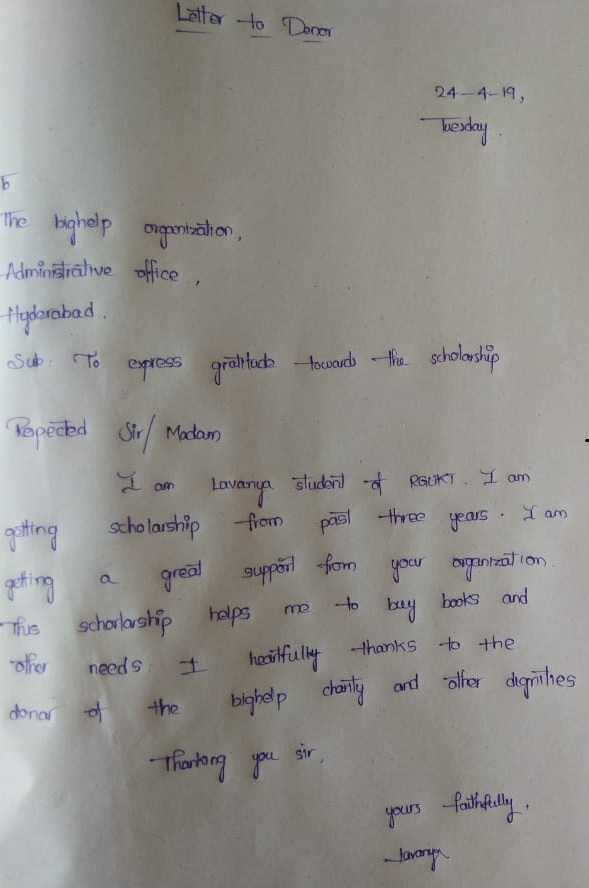 Letter to Donor
24-4-19,
Tuesday.
To
The bighelp organization,
Administrative office,
Hyderabad.
Sub: To express gratitude towards the scholarship
Repected Sir/Madam
I am Lavanya student of RGUKT. I am
getting scholarship from past three years. I am
getting a great support from your organization.
This schorlarship helps me to buy books and
other needs. I heartfully thanks to the
donar of the bighelp charity and other dignities
Thanking you sir,
yours faithfully,
Lavanya